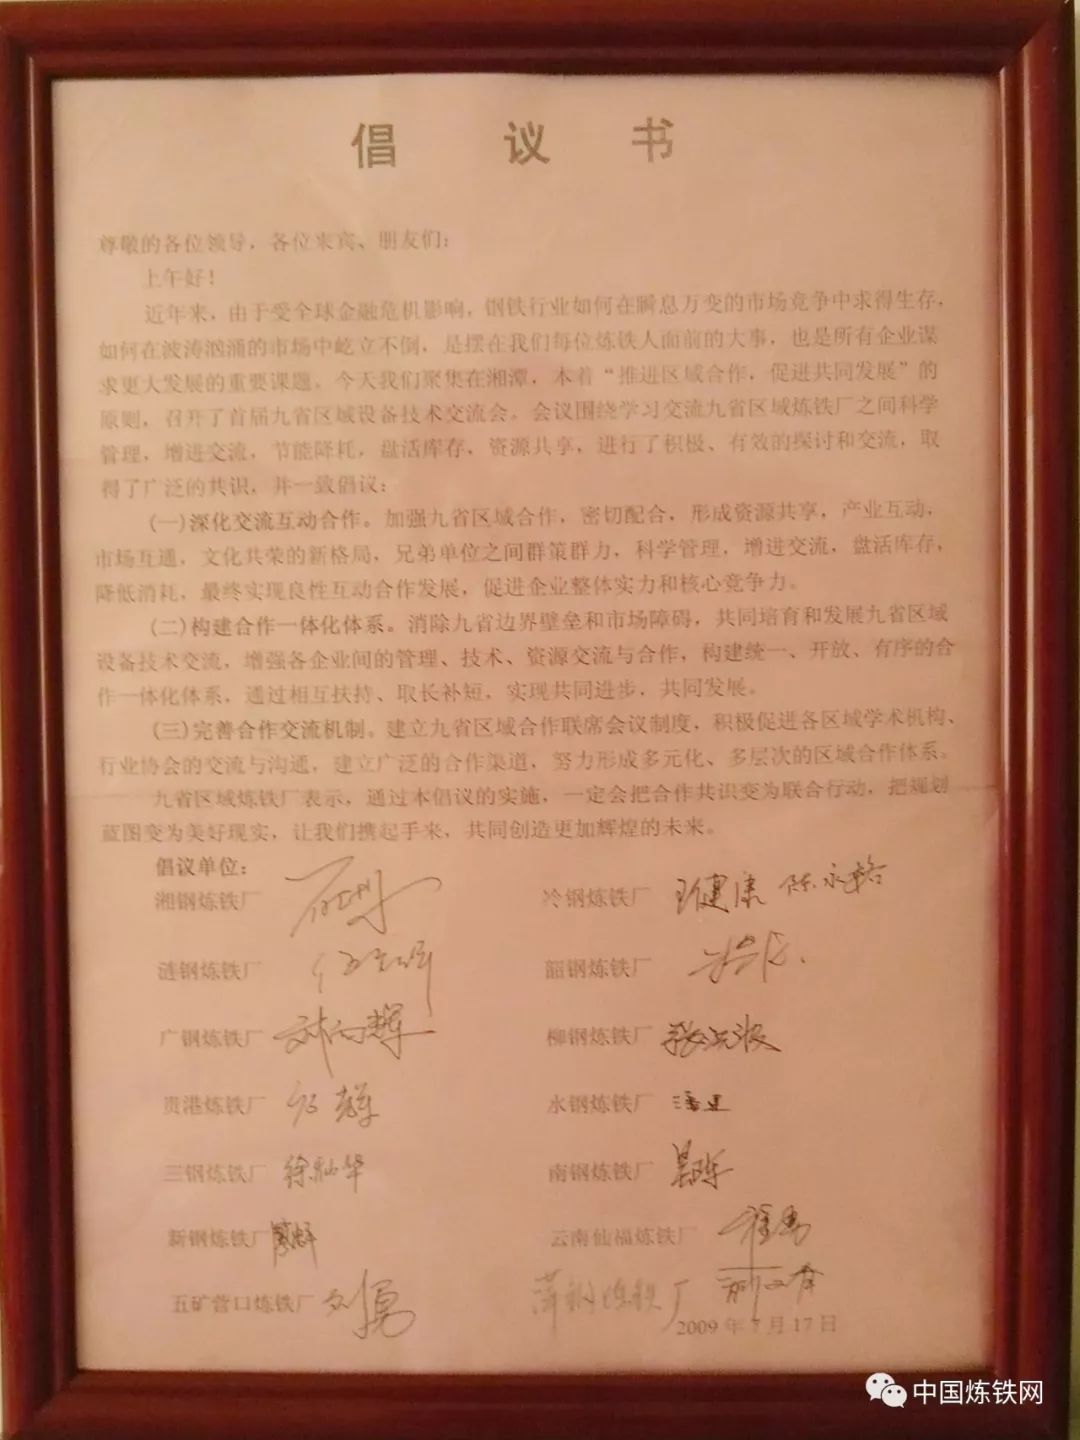 倡 议 书
尊敬的各位领导，各位来宾、朋友们：
上午好！
近年来，由于受全球金融危机影响，钢铁行业如何在瞬息万变的市场竞争中求得生存，
如何在波涛汹涌的市场中屹立不倒，是摆在我们每位炼铁人面前的大事，也是所有企业谋
求更大发展的重要课题。今天我们聚集在湘潭，本着“推进区域合作，促进共同发展”的
原则，召开了首届九省区域设备技术交流会。会议围绕学习交流九省区域炼铁厂之间科学
管理，增进交流，节能降耗，盘活库存，资源共享，进行了积极、有效的探讨和交流，取
得了广泛的共识，并一致倡议：
(一)深化交流互动合作。加强九省区域合作，密切配合，形成资源共享，产业互动，
市场互通，文化共荣的新格局，兄弟单位之间群策群力，科学管理，增进交流，盘活库存，
降低消耗，最终实现良性互动合作发展，促进企业整体实力和核心竞争力。
(二)构建合作一体化体系。消除九省边界壁垒和市场障碍，共同培育和发展九省区域
设备技术交流，增强各企业间的管理、技术、资源交流与合作，构建统一、开放、有序的合
作一体化体系，通过相互扶持、取长补短，实现共同进步，共同发展。
(三)完善合作交流机制。建立九省区域合作联席会议制度，积极促进各区域学术机构、
行业协会的交流与沟通，建立广泛的合作渠道，努力形成多元化、多层次的区域合作体系。
九省区域炼铁厂表示，通过本倡议的实施，一定会把合作共识变为联合行动，把规划
蓝图变为美好现实，让我们携起手来，共同创造更加辉煌的未来。
倡议单位：
湘钢炼铁厂 冷钢炼铁厂 王健康
涟钢炼铁厂 韶钢炼铁厂
广钢炼铁厂 柳钢炼铁厂
贵港炼铁厂 水钢炼铁厂 潘建
三钢炼铁厂 徐灿华 南钢炼铁厂
新钢炼铁厂 云南仙福炼铁厂
五矿营口炼铁厂 刘勇 萍钢炼铁厂
2009 年 7 月 17 日
中国炼铁网